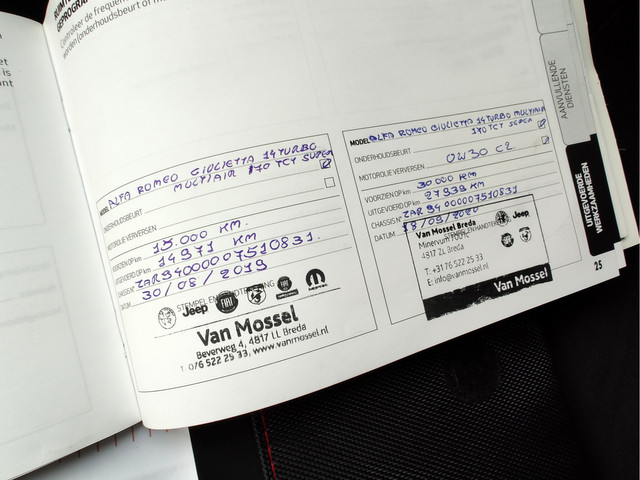 GEPROGRA
Controleer de frequen
worden (onderhoudsbeurt of m
et
is
nt
MODEL ALFA ROMEO GIULIETTA 14 TURBO
MULTIAIR 170 TCT SUPER
ONDERHOUDSBEURT
MOTOROLIE VERVERSEN
VOORZIEN OP km 15.000 KM.
UITGEVOERD OP km 14971 KM
CHASSISN° ZAR94000007510831.
DATUM 30/08/2019
STEMPEL EN HANDTEKENING
Jeep FIAT mopar
Van Mossel
Beverweg 4, 4817 LL Breda
T. 076 522 25 33, www.vanmossel.nl
MODEL ALFA ROMEO GIULIETTA 14 TURBO MULTIAIR
170 TCT SUPER
ONDERHOUDSBEURT
MOTOROLIE VERVERSEN 0W30 C2
VOORZIEN OP km 30 000 KM
UITGEVOERD OP km 27939 KM
CHASSISN° ZAR94000007510831
DATUM 18/09/2020
Van Mossel Breda
Jeep
4817 ZL Breda
T: +31 76 522 25 33
E: info@vanmossel.nl
Van Mossel
AANVULLENDE
DIENSTEN
UITGEVOERDE
WERKZAAMHEDEN
25